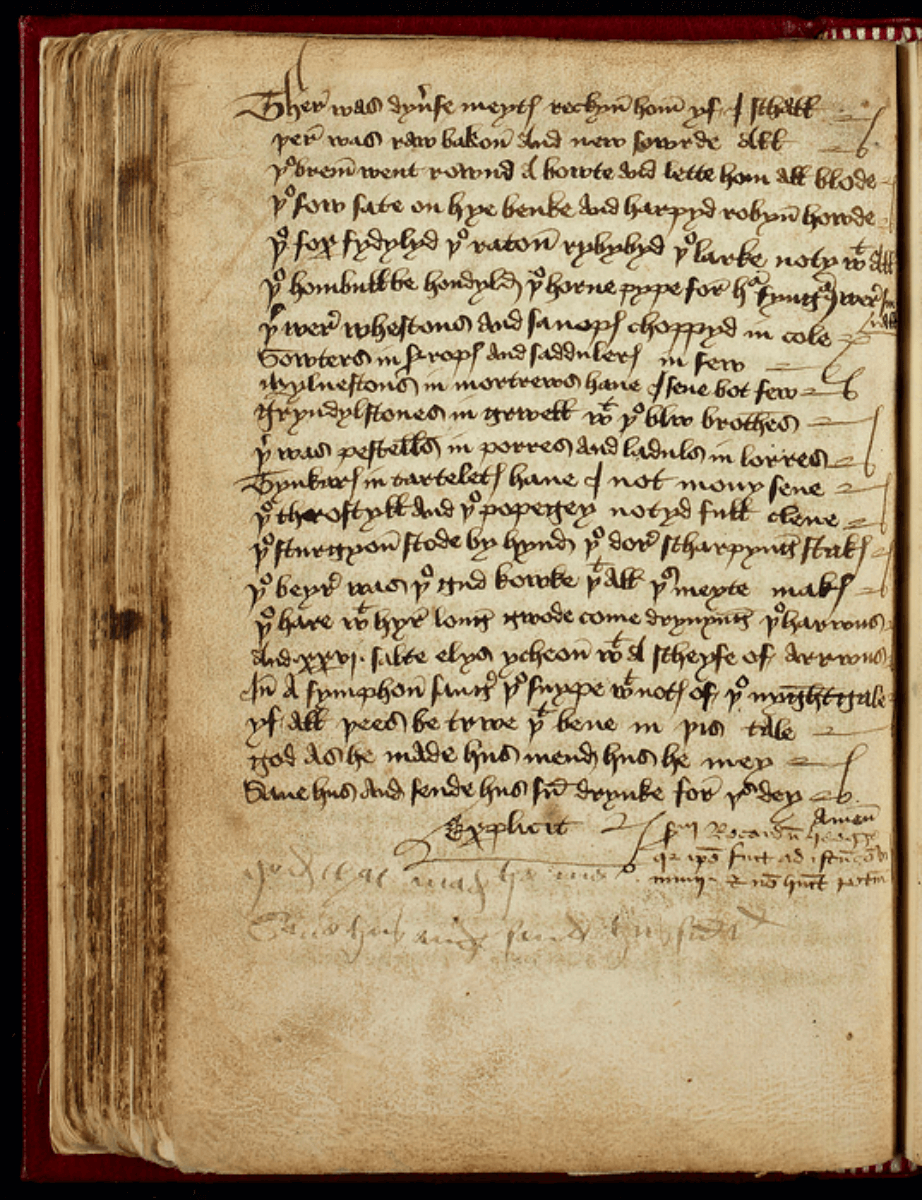 Ther was dyuse meytꝭ rechyn hom yf I schall
þer was raw bakon And new sowrde All
þe brem went rownd A bowte And lette hom all blode
þe sow sate on hye benke And harpyd robyn howde
þe fox fydylyd þe raton rybybyd þe larke noty wt All
þe hombulbe hondyld þe horne pype for hr fyngꝭ wer
þer wer whestons And sanopꝭ choppyd in cole
Sowters in syropꝭ And saddulerꝭ in sew
Mylnestons in mortrews haue I sene bot few
Gryndylstones in grwell wt þe blw brothes
þr was pestells in porres And laduls in lorres
Tynkarꝭ in tarteletꝭ haue I not mony sene
þe throstyll And þe popegey notyd full clene
þe sturgyon stode by hynd þe dor scharpyng stakꝭ
þe beyr was þe gud kowke þt All þs meyte makꝭ
þe hare wt hyr long gwode come dryuyng þe harwus
And xxvj. salte elys ycheon wt A scheyfe of Arrwus
In A symphon sang þe snype wt notꝭ of þe nyghtgale
yf All þees be trwe þt bene in þis tale
god As he made hus mend hus he mey
Saue hus And sende hus su drynke for þs dey
Amen
Explicit